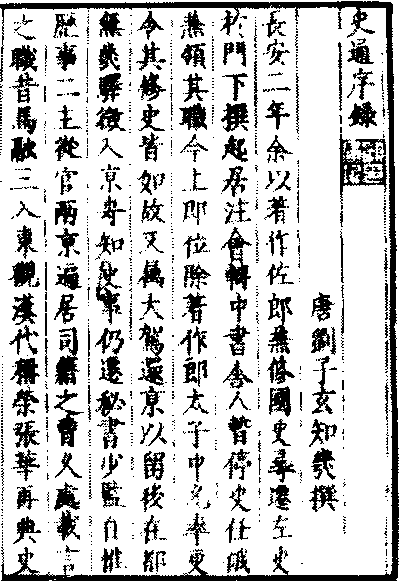 史通序錄
唐劉子玄知幾撰
長安二年余以著作佐郎兼修國史尋遷左史
於門下撰起居注會轉中書舍人暫停史任俄
兼領其職今上即位除著作郎太子中允率更
令其修史皆如故又属大駕還京以留後在都
無幾驛徵入京專知史事仍遷秘書少監自惟
歷事二主從官兩京遍居司籍之曹久處載言
之職昔馬融三入東觀漢代稱榮張華再典史